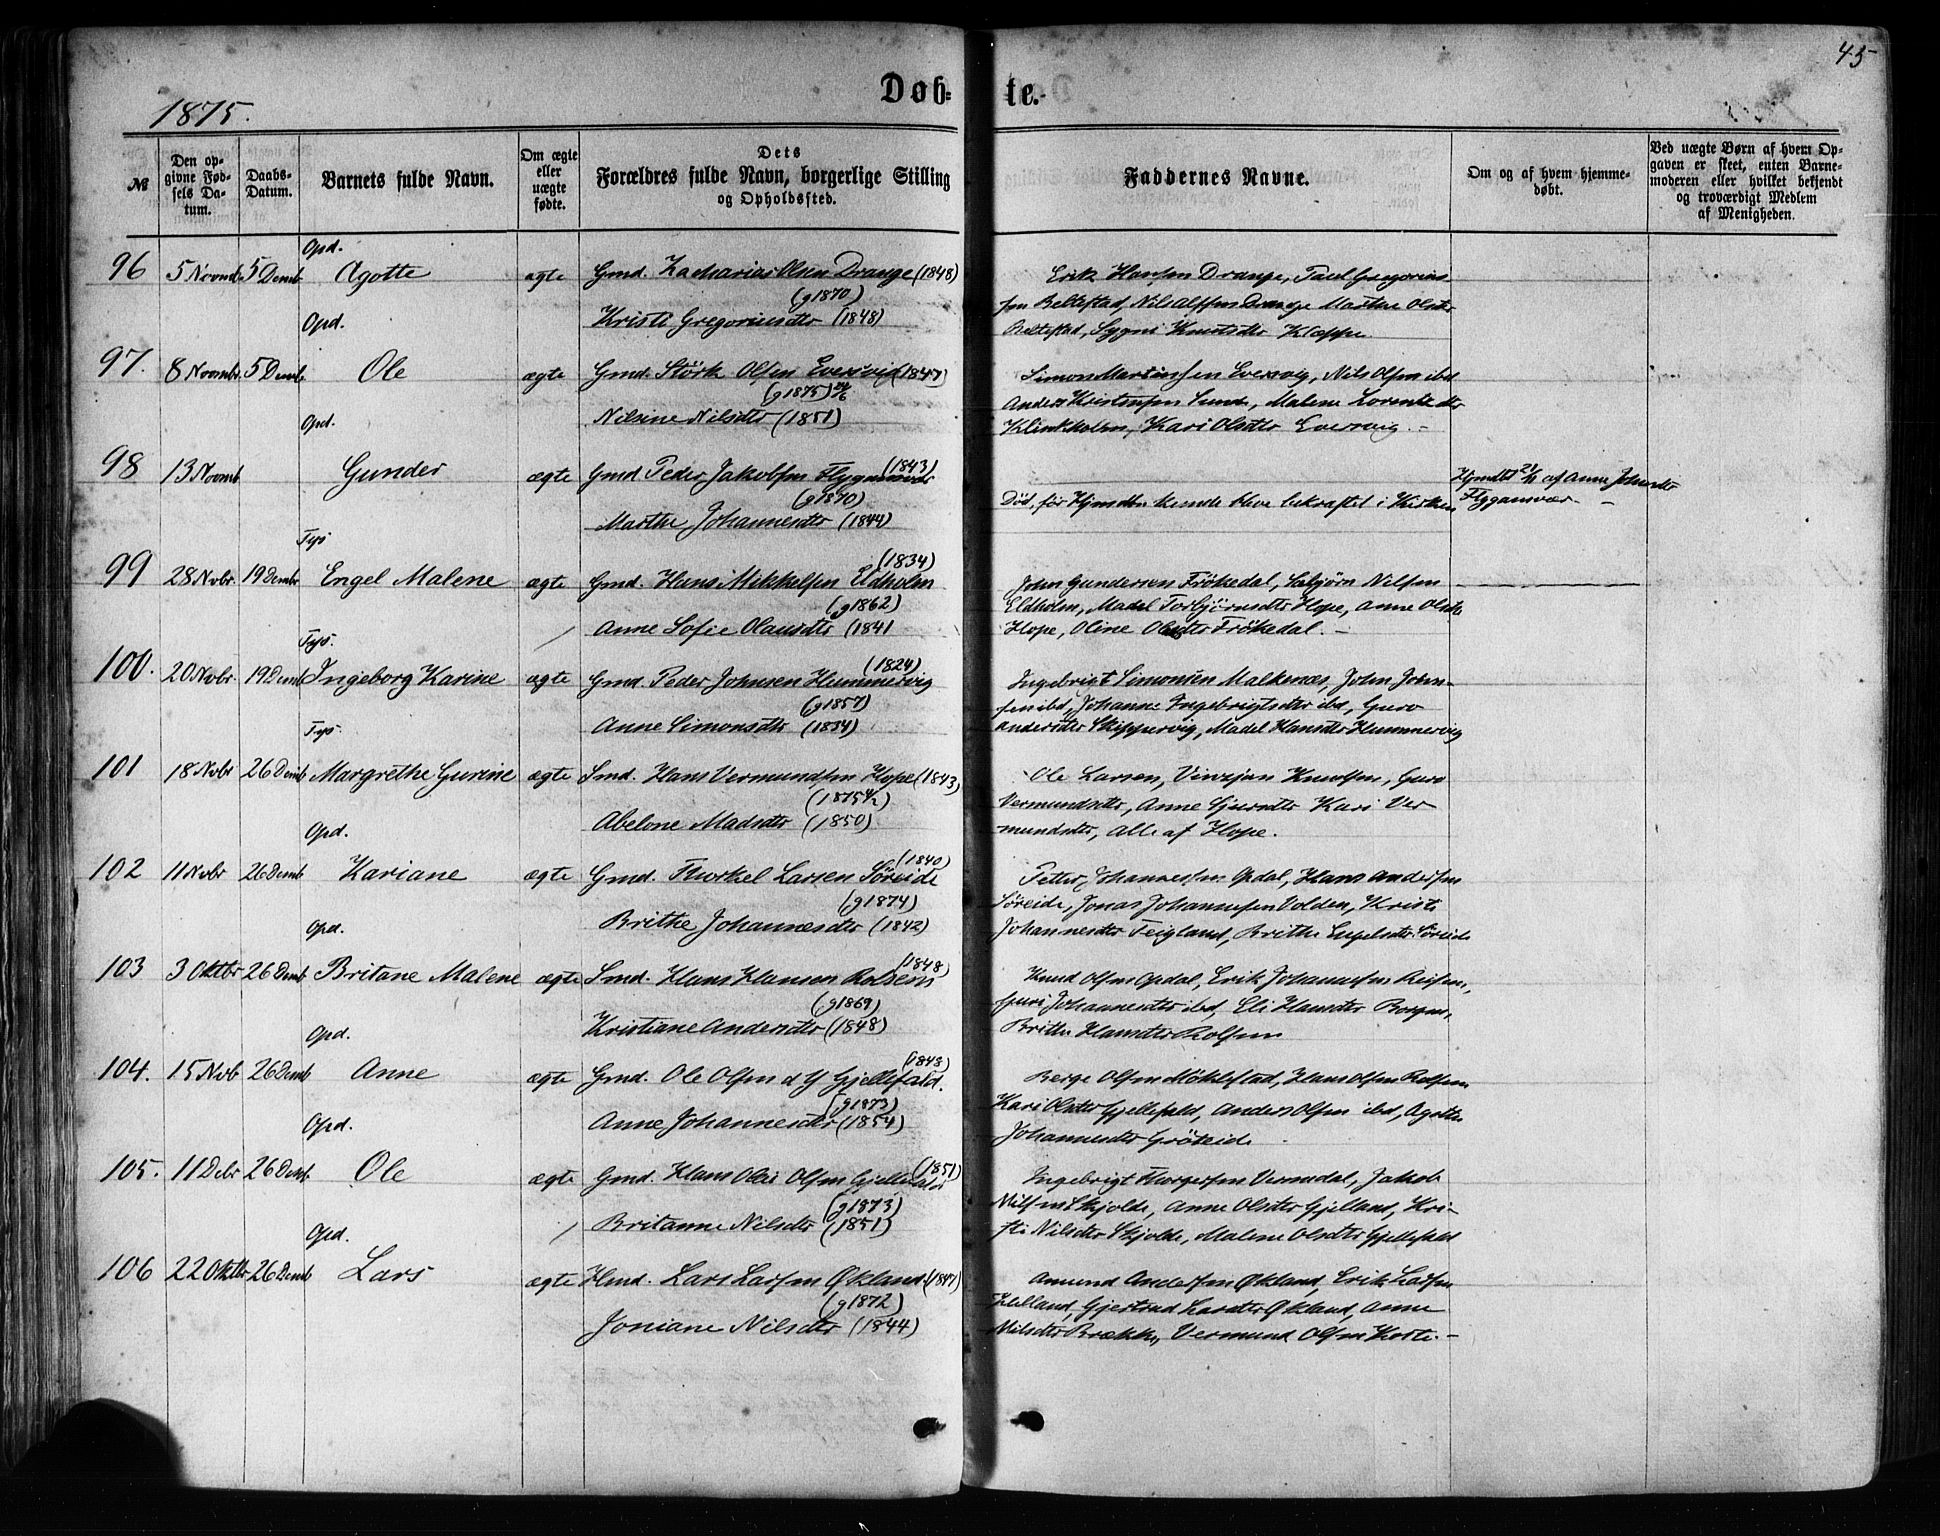 45
1875.
Døb-
te.
№
Den op-
givne Fød-
sels Da-
tum.
Daabs-
Datum.
Barnets fulde Navn.
Om ægte
eller
uægte
fødte.
Dets
Forældres fulde Navn, borgerlige Stilling
og Opholdssted.
Faddernes Navne.
Om og af hvem hjemme-
døbt.
Ved uægte Børn af hvem Op-
gaven er skeet, enten Barne-
moderen eller hvilket bekjendt
og troværdigt Medlem
af Menigheden.
Opd.
96 5 Novmb 5 Demb Agotte ægte Gmd. Zacharias Olsen Drange (1848)
(g1870)
Kristi Gregoriusdtr (1848)
Erik Hansen Drange, Paul Gregorius-
sen Beltestad, Nils Olsen Drange Marthe Olsdtr
Beltestad, Sygni Knutsdtr Kleppe
Opd.
97. 8 Novmbr. 5 Demb Ole ægte Gmd. Størk Olsen Eversvig (1847)
(g1875) 24/6
Nilsine Nilsdtr (1851)
Simon Martinsen Eversvig, Nils Olsen ibd
Anders Kristensen Sund, Malene Lorentzdtr
Klinkholm, Kari Olsdtr Eversvig. -
Opd.
98 13 Novmb Gunder ægte Gmd Peder Jakobsen Flygansvær (1843)
(g1870)
Marthe Johannesdtr (1844)
Død, før Hjmdbn kunde blive bekræftet i Kirken
Hjmdbt 21/11 af Anne Johnsdtr
Flygansvær -
Tys
99 28 Nvbr. 19 Dembr Engel Malene ægte Gmd. Hans Mikkelsen Eldholm (1834)
(g1862)
Anne Sofie Olausdtr (1841
John Gundersen Frøkedal, Asbjørn Nilsen
Eldholm, Madel Torbjørnsdtr Hope, Anne Olsdtr
Hope, Oline Olsdtr Frøkedal. -
Tys.
100. 20 Nvbr. 19 Demb Ingeborg Karine ægte Gmd. Peder Johnsen Hummervig (1824)
(g1857)
Anne Simonsdtr (1834)
Ingebrigt Simonsen Malkenæs, John John-
sen ibd, Johanne Ingebrigtsdtr ibd, Guro
Andersdtr Skippervig, Madel Hansdtr Hummervig
Tys.
101 18 Nvbr 26 Demb Margrethe Gurine ægte Smd. Hans Vermundsen Hope (1843)
(1875 4/2)
Abelone Madsdtr (1850)
Ole Larsen, Vinzjan Knutsen, Guro
Vermundsdtr, Anne Gjursdtr Kari Ver-
mundsdtr, Alle af Hope.
Opd.
102 11 Nvbr 26 Demb Kariane ægte Gmd. Thorkel Larsen Søreide (1840)
(g1874)
Brithe Johannesdtr (1842)
Petter Johannessen Opdal, Hans Andersen
Søreide, Jonas Johannessen Volden, Kristi
Johannesdtr Teigland, Brithe Engelsdtr Søreide
Opd.
103 3 Oktbr 26 Demb Britane Malene ægte Smd. Hans Hansen Rolsens (1848)
(g1869)
Kristiane Andersdtr (1848)
Knud Olsen Opdal, Erik Johannessen
Guri Johannesdtr ibd, Eli Hansdtr
Brithe Hansdtr Rolsen
Opd.
104. 15 Nvb 26 Demb Anne ægte Gmd. Ole Olsen d Y Gjellefald. (1843)
(g1873)
Anne Johannesdtr (1854)
Berge Olsen Møklestad, Hans Olsen Rolsen
Kari Olsdtr Gjellefald, Anders Olsen ibd, Agotte
Johannesdtr Grøteide.
Opd.
105. 11 Debr 26 Demb Ole ægte Gmd. Hans Olai Olsen Gjellefald (1851)
(g1873)
Britanne Nilsdtr (1851)
Ingebrigt Thorgersen Vernedal, Jakob
Nilsen Skjolde, Anne Olsdtr Gjelland, Kri-
sti Nilsdtr Skjolde, Malene Olsdtr Gjellefald
Opd.
106 22 Oktbr 26 Demb Lars ægte Hmd. Lars Larsen Økland (1847)
(g1872)
Joniane Nilsdtr (1844)
Amund Andersen Økland, Erik Larsen
Helland, Gjertrud Larsdtr Økland, Anne
Nilsdtr Brække, Vermund Olsen Koste. -